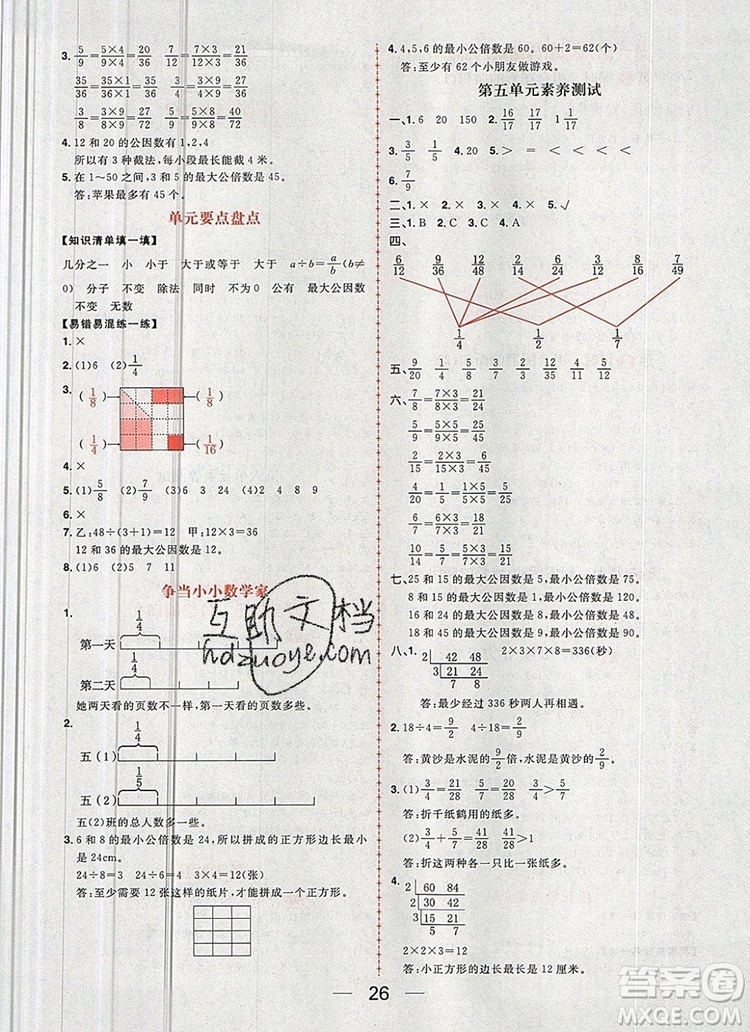 3. 5/9=5×4/9×4=20/36 7/12=7×3/12×3=21/36
35/36=35×1/36×1=35/36 7/9=7×4/9×4=28/36
4. 12 和 20 的公因数有 1,2,4
所以有 3 种截法,每小段最长能截 4 米。
5. 在 1~50 之间,3 和 5 的最大公倍数是 45。
答:苹果最多有 45 个。
单元要点盘点
【知识清单填一填】
几分之一 小 小于 大于或等于 大于 a÷b=a/b(b≠
0) 分子 不变 除法 同时 不为 0 公有 最大公因数
不变 无数
【易错易混练一练】
1. ×
2. (1)6 (2)1/4
3. (1/8) (1/8)
(1/4) (1/16)
4. ×
5. (1)5/8 (2)7/9 (3)6 3 24 (4)2 4 8 9
6. ×
7. 乙:48÷(3+1)=12 甲:12×3=36
12 和 36 的最大公因数是 12。
8. (1)6 (2)5 7 11
争当小小数学家
1.
1/4
第一天
1/4
第二天
她两天看的页数不一样,第一天看的页数多些。
2.
1/4
五(1)
1/5
五(2)
五(2)班的总人数多一些。
3. 6 和 8 的最小公倍数是 24,所以拼成的正方形边长最小
是 24cm。
24÷8=3 24÷6=4 3×4=12(张)
答:至少需要 12 张这样的纸片,才能拼成一个正方形。
4. 4,5,6 的最小公倍数是 60。60+2=62(个)
答:至少有 62 个小朋友做游戏。
第五单元素养测试
一、1. 6 20 150 2. 16/17 17/17 1/17
3. 3/5 3/5 4. 20 5. > = < < < <
6. 7/9
二、1. × 2. × 3. × 4. × 5. √
三、1. B 2. C 3. C 4. A
四、
6/12 9/36 12/48 2/14 6/24 3/12 8/16 7/49
1/4 1/2 1/7
五、9/20 13/15 1/4 7/18 4/11 9/20 3/5
六、7/8=7×3/8×3=21/24
5/9=5×5/9×5=25/45
2/15=2×3/15×3=6/45
1/9=1×5/9×5=5/45
6/7=6×3/7×3=18/21
10/21=10×1/21×1=10/21
七、25 和 15 的最大公因数是 5,最小公倍数是 75。
8 和 15 的最大公因数是 1,最小公倍数是 120。
16 和 24 的最大公因数是 8,最小公倍数是 48。
18 和 45 的最大公因数是 9,最小公倍数是 90。
八、1. 2 42 48 2×3×7×8=336(秒)
3 21 24
7 8
答:最少经过 336 秒两人再相遇。
2. 18÷4=9/2 4÷18=2/9
答:黄沙是水泥的9/2倍,水泥是黄沙的2/9。
3. (1)3/4=21/28 5/7=20/28 21/28>20/28
答:折千纸鹤用的纸多。
(2)3/4+5/7=21/28+20/28>1
答:折这两种一共用的纸比一张多。
4.
2 60 84
2 30 42
3 15 21
5 7
2×2×3=12(厘米)
答:小正方形的边长最长是 12 厘米。
26
互助文档
hdzuoye.com
答案圈
MXQE.COM